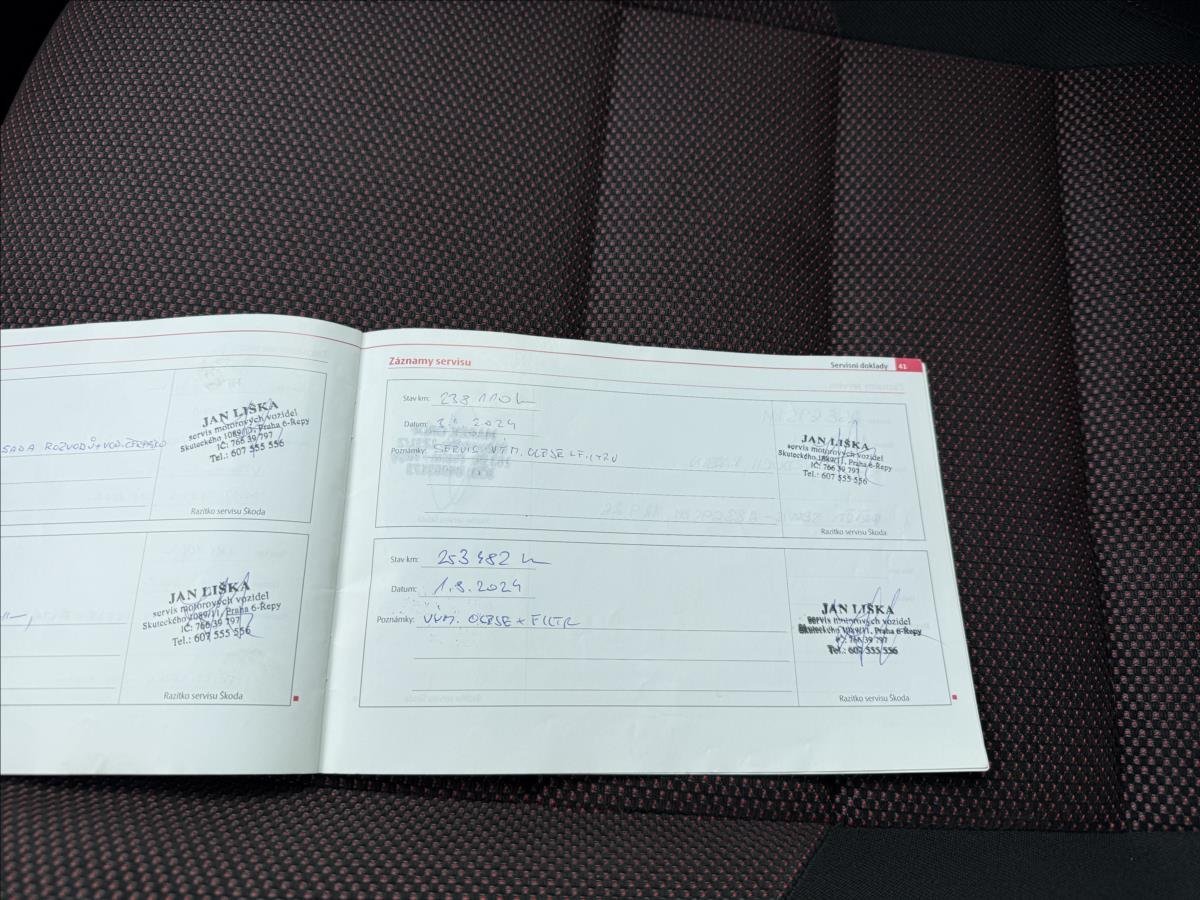 SADA ROZVODŮ + VOD. ČERPADLO
JAN LIŠKA
servis motorových vozidel
Skuteckého 1089/11, Praha 6-Řepy
IČ: 766 39 797
Tel.: 607 555 556
Razítko servisu Škoda
JAN LIŠKA
servis motorových vozidel
Skuteckého 1089/11, Praha 6-Řepy
IČ: 766 39 797
Tel.: 607 555 556
Razítko servisu Škoda
Záznamy servisu
Servisní doklady 41
Stav km: 238 110 km
Datum: 2024
Poznámky: SERVIS VÝM. OLEJE
JAN LIŠKA
servis motorových vozidel
Skuteckého 1089/11, Praha 6-Řepy
IČ: 766 39 797
Tel.: 607 555 556
Razítko servisu Škoda
Stav km: 253 482 km
Datum: 1.8.2024
Poznámky: VÝM. OLEJE + FILTR
JAN LIŠKA
servis motorových vozidel
Skuteckého 1089/11, Praha 6-Řepy
IČ: 766 39 797
Tel.: 607 555 556
Razítko servisu Škoda